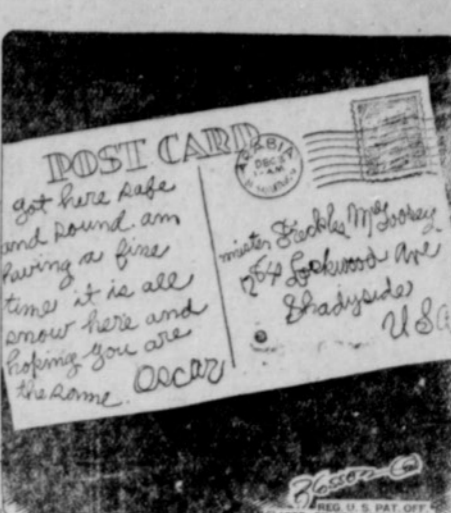 POST CARD
got here safe
and sound. am
having a fine
time it is all
snow here and
hoping you are
the same.
Oscar
DEC 27
AM
mister Freckles McGoosey
Lockwood Ave
Shadyside
U S A
REG. U. S. PAT. OFF.